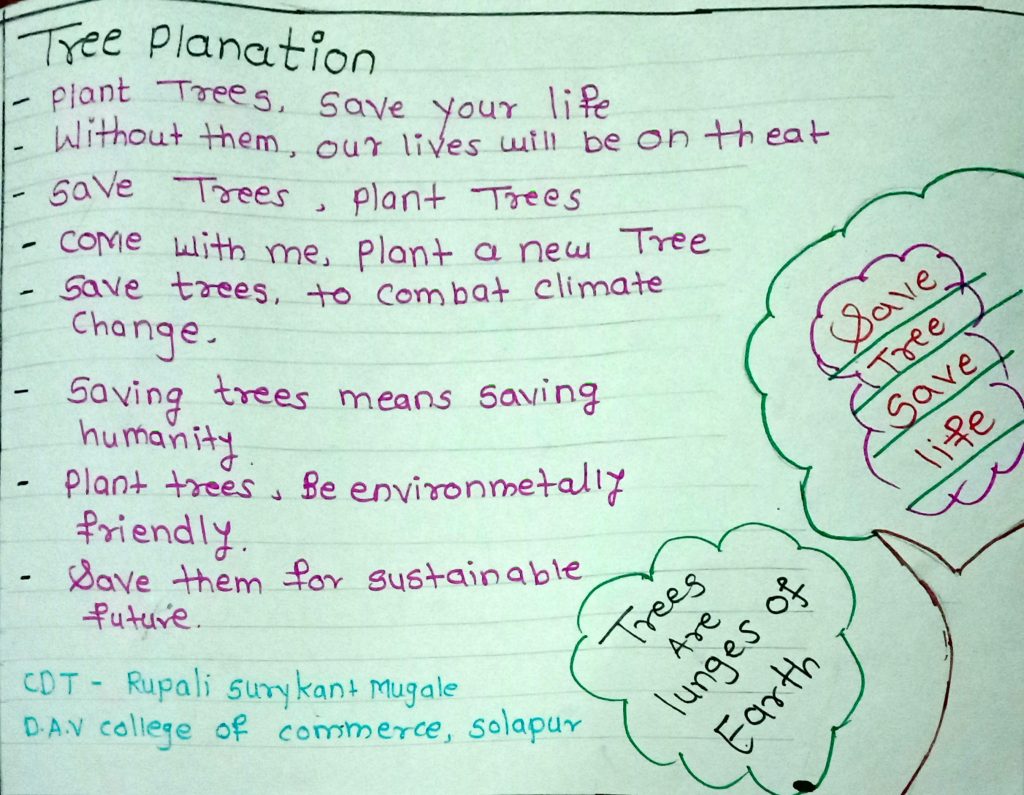 Tree Planation
- Plant Trees, Save your life
- Without them, our lives will be on theat
- Save Trees, Plant Trees
- Come with me, Plant a new Tree
- Save trees, to combat climate
Change.
- Saving trees means saving
humanity.
- Plant trees, Be environmetally
friendly.
- Save them for sustainable
future.
CDT - Rupali Surykant Mugale
D.A.V college of commerce, solapur
Save
Tree
Save
life
Trees
Are
lunges of
Earth